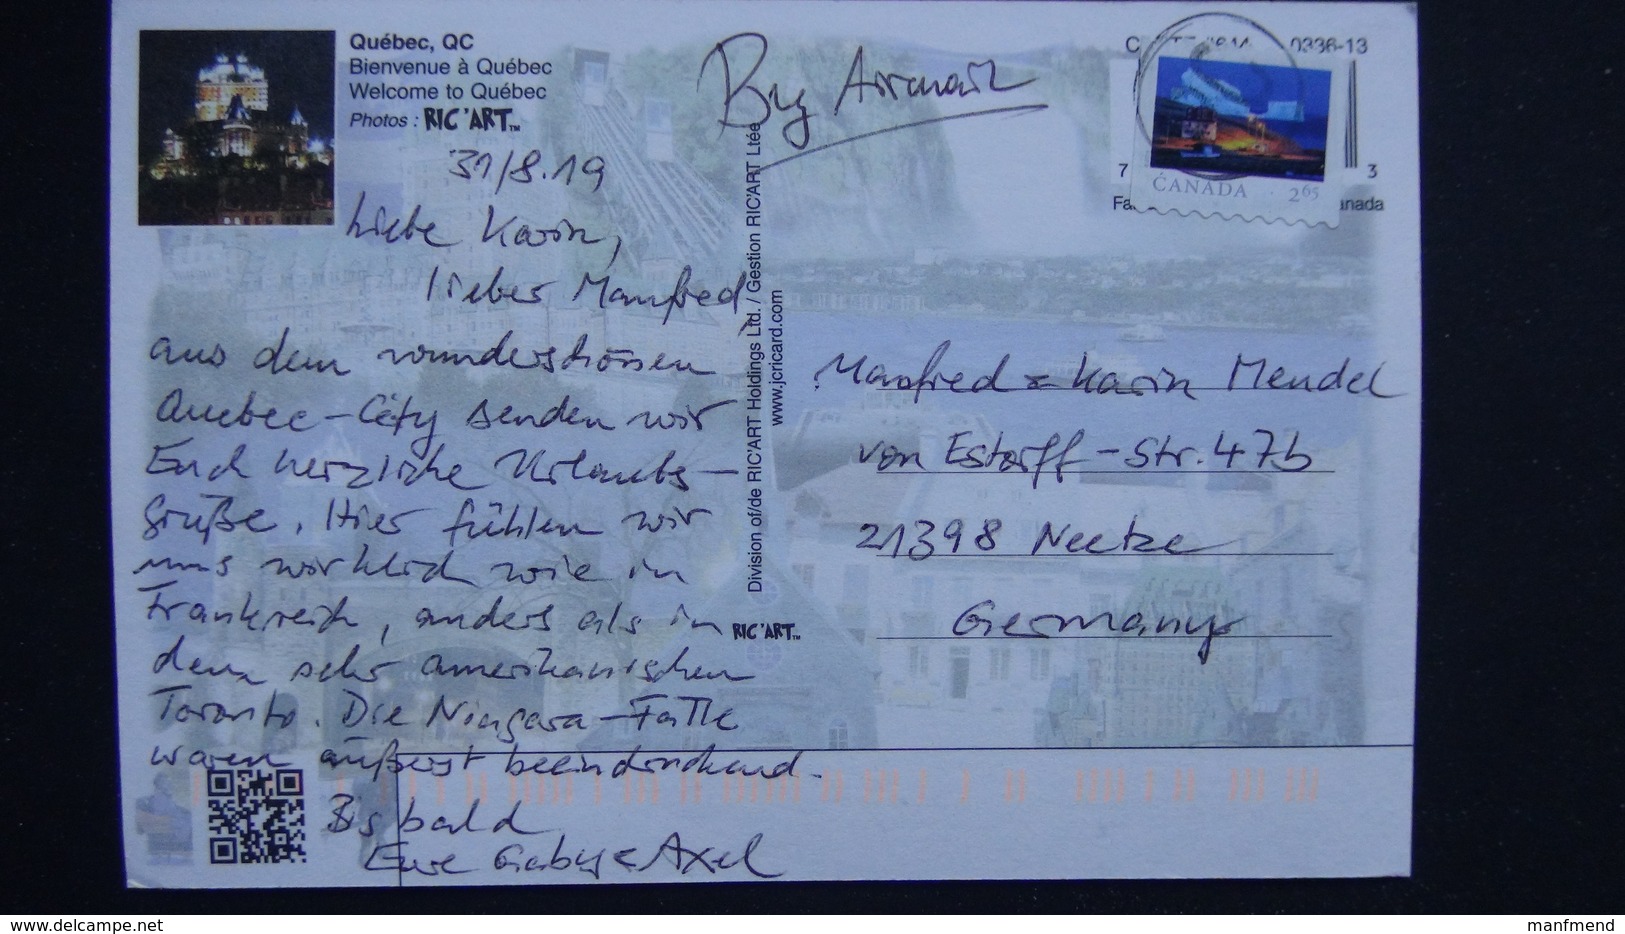 Québec, QC
Bienvenue à Québec
Welcome to Québec
Photos : RIC'ART™
By Airmail
0336-13
CANADA 2⁶⁵
7 3
anada
31/8.19
Liebe Karin,
lieber Manfred,
aus dem wunderschönen
Quebec-City senden wir
Euch herzliche Urlaubs-
grüße. Hier fühlen wir
uns wirklich wie in
Frankreich, anders als in
dem sehr amerikanischen
Toronto. Die Niagara-Fälle
waren äußerst beeindruckend.
Bis bald
Eure Gaby & Axel
Division of/de RIC'ART Holdings Ltd. / Gestion RIC'ART Ltée
www.jcricard.com
RIC'ART™
Manfred & Karin Mendel
von Estorff-Str. 47b
21398 Neetze
Germany
manfmend